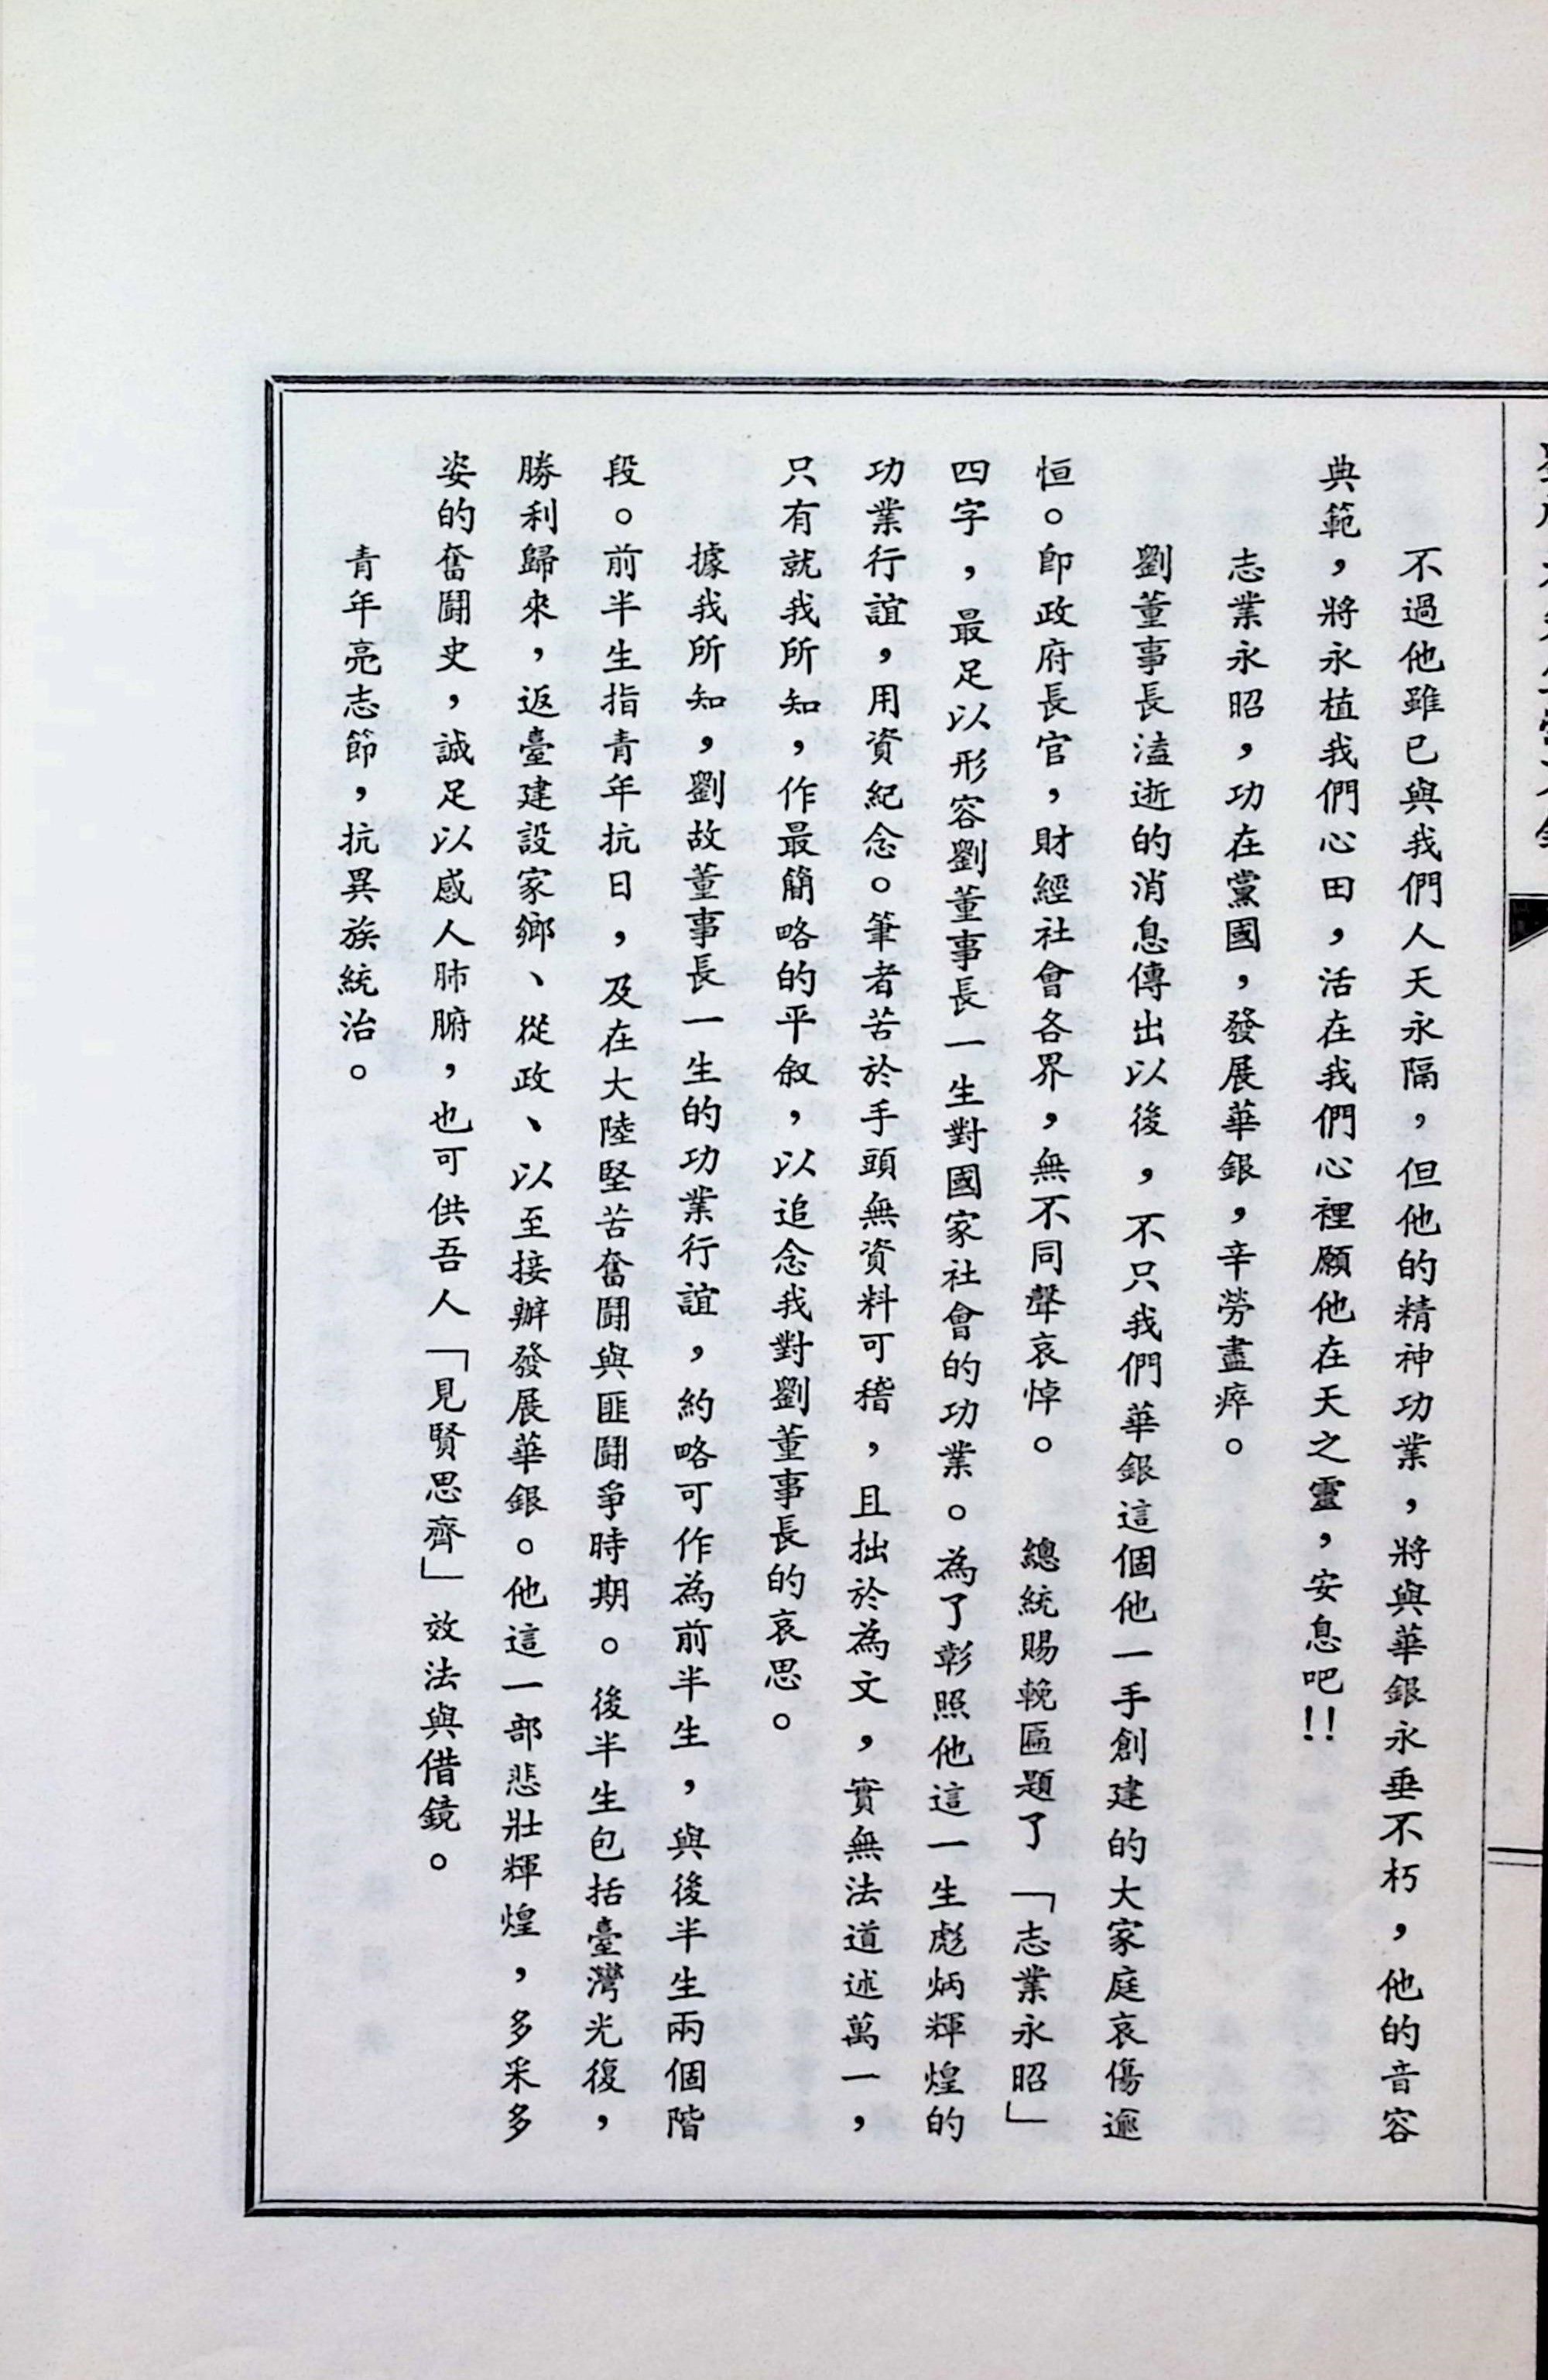 不過他雖已與我們人天永隔，但他的精神功業，將與華銀永垂不朽，他的音容
典範，將永植我們心田，活在我們心裡願他在天之靈，安息吧！！
志業永昭，功在黨國，發展華銀，辛勞盡瘁。
劉董事長溘逝的消息傳出以後，不只我們華銀這個他一手創建的大家庭哀傷逾
恒。卽政府長官，財經社會各界，無不同聲哀悼。　總統賜輓匾題了「志業永昭」
四字，最足以形容劉董事長一生對國家社會的功業。為了彰照他這一生彪炳輝煌的
功業行誼，用資紀念。筆者苦於手頭無資料可稽，且拙於為文，實無法道述萬一，
只有就我所知，作最簡略的平叙，以追念我對劉董事長的哀思。
據我所知，劉故董事長一生的功業行誼，約略可作為前半生，與後半生兩個階
段。前半生指青年抗日，及在大陸堅苦奮鬪與匪鬪爭時期。後半生包括臺灣光復，
勝利歸來，返臺建設家鄉、從政、以至接辦發展華銀。他這一部悲壯輝煌，多采多
姿的奮鬪史，誠足以感人肺腑，也可供吾人「見賢思齊」效法與借鏡。
青年亮志節，抗異族統治。